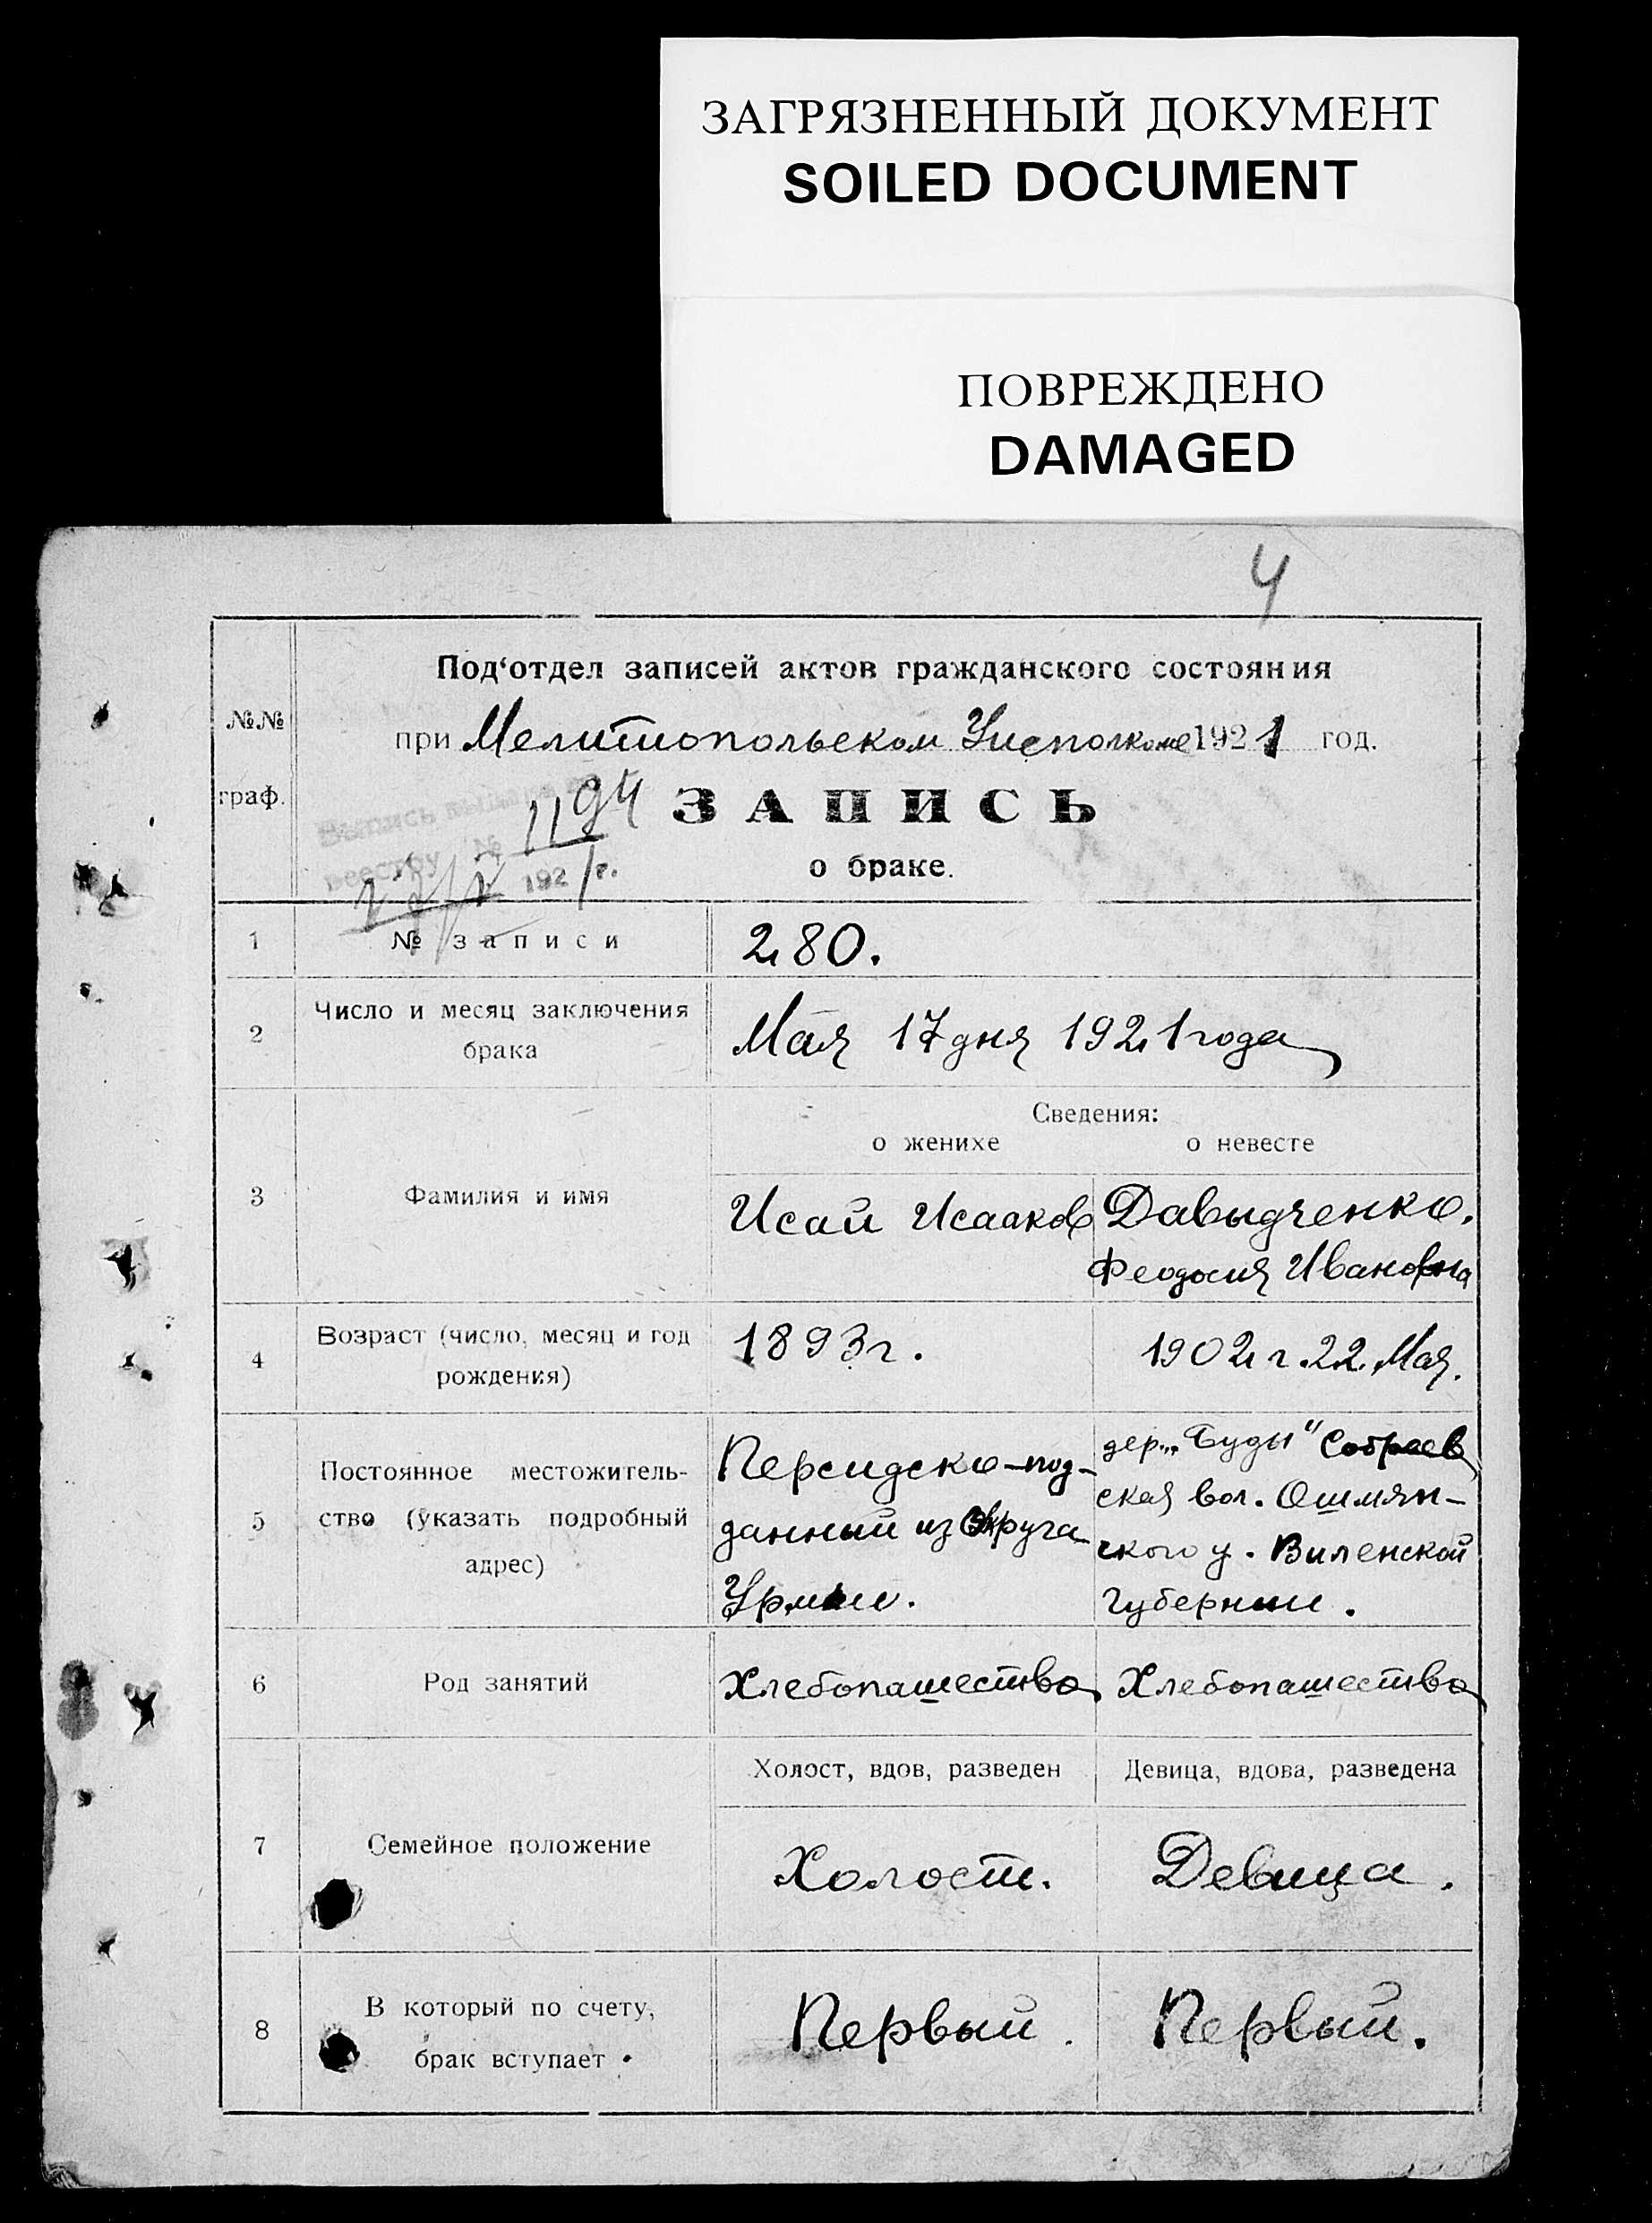 ЗАГРЯЗНЕННЫЙ ДОКУМЕНТ
SOILED DOCUMENT
ПОВРЕЖДЕНО
DAMAGED
4
№№
граф.
Под‘отдел записей актов гражданского состояния
при Мелитопольском Уисполкоме 1921 год.
ЗАПИСЬ
о браке.
Выпись выдана
реестру № 1194
1921 г.
1
№ записи
280.
2
Число и месяц заключения
брака
Мая 17 дня 1921 года
Сведения:
о женихе
о невесте
3
Фамилия и имя
Исай Исааков
Давыдченко.
Феодосия Ивановна
4
Возраст (число, месяц и год
рождения)
1893 г.
1902 г. 22 Мая.
5
Постоянное местожитель-
ство (указать подробный
адрес)
Персидско-под-
данный из округа
Урмии.
дер. „Буды"
ская вол. Ошмян-
ского у. Виленской
губернии.
6
Род занятий
Хлебопашество
Хлебопашество
7
Семейное положение
Холост, вдов, разведен
Девица, вдова, разведена
Холост.
Девица.
8
В который по счету,
брак вступает
Первый.
Первый.